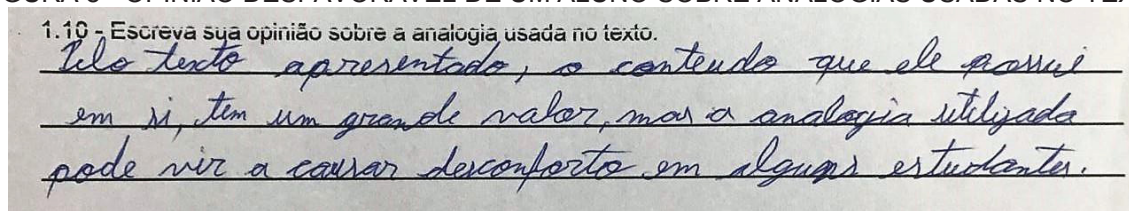 1.10 - Escreva sua opinião sobre a analogia usada no texto.
Pelo texto apresentado, o conteudo que ele possui
em si, tem um grande valor, mas a analogia utilizada
pode vir a causar desconforto em alguns estudantes.